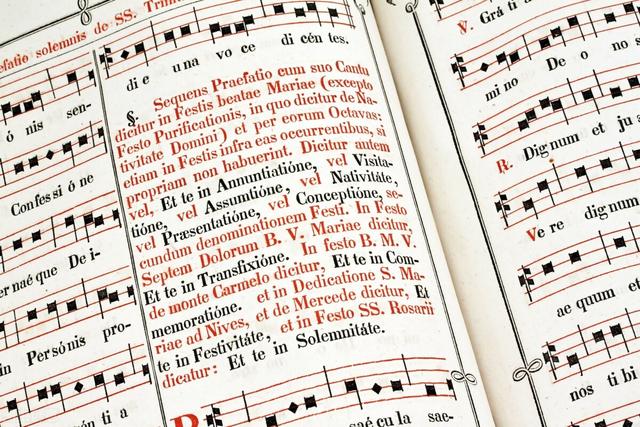 efatio solemnis de SS. Trinit
ó nis sen-
Confes si ó ne
er naé que De i-
in Persónis pro-
én ti a
di e una vo ce di cén tes.
§. Sequens Praefatio cum suo Cantu
dicitur in Festis beatae Mariae (excepto
Festo Purificationis, in quo dicitur de Na-
tivitate Domini) et per eorum Octavas:
etiam in Festis infra eas occurrentibus, si
propriam non habuerint. Dicitur autem
vel, Et te in Annuntiatióne, vel Visita-
tióne, vel Assumtióne, vel Nativitáte,
vel Præsentatióne, vel Conceptióne, se-
cundum denominationem Festi. In Festo
Septem Dolorum B. V. Mariae dicitur,
Et te in Transfixióne. In festo B. M. V.
de monte Carmelo dicitur, Et te in Com-
memoratióne. et in Dedicatione S. Ma-
riae ad Nives, et de Mercede dicitur, Et
te in Festivitáte, et in Festo SS. Rosarii
dicatur: Et te in Solemnitáte.
saé cu la sae-
℣. Grá ti
mi no De o no s
℟. Dig num et ju s
Ve re dig num
ae quum et
nos ti bi